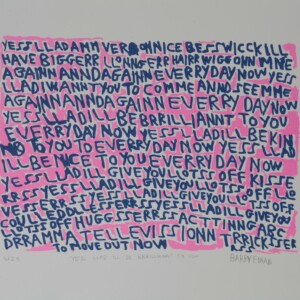 YESSLLADAMMVERRONNICEBESSWICCKILL
HAVE BIGGERR LLONNGERR HAIRR WIGG OHN MMEE
AGAINN ANNDAGAINN EVERRY DAY NOW YESS
LLADIWANNTYOU TO COMMEANND SEEMMEE
AGAINNANNDAGAINN EVERRY DAY NOW
YESSLLADILLBEBRRILLIANNT TO YOU
EVERRY DAY NOW YESSLLADILLBEKIN
TO YOU EVERRY DAY NOW YESSLLAD
ILLBENICE TO YOU EVERRY DAY NOW
YESSLLADILLGIVEYOULLOTSS OFF KISSE
ERRSSYESSLLADILLGIVEYOULLOTSS OFF
VERRSSYESSLLADILLGIVEYOU
COULLEDDOLLEERRSSYESSLLADILLGIVEYOU
LLOTSSOFFHUGGSSEERRSS ACTTINNGABC
DRRAMMNATELLEVISSIONN TRRICKSSER
TO MOVE OUT NOW